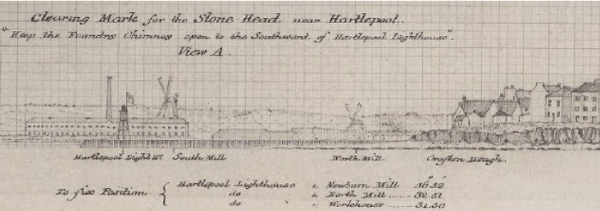 Clearing Mark for the Stone Head near Hartlepool.
"Keep the Foundry Chimney open to the Southward of Hartlepool Lighthouse".
View A.
Hartlepool Light Ho. South Mill North Mill. Crofton Hough.
To fix Position { Hartlepool Lighthouse & Newburn Mill
do & North Mill ...... 32.51
do & Workhouse ... 51.30